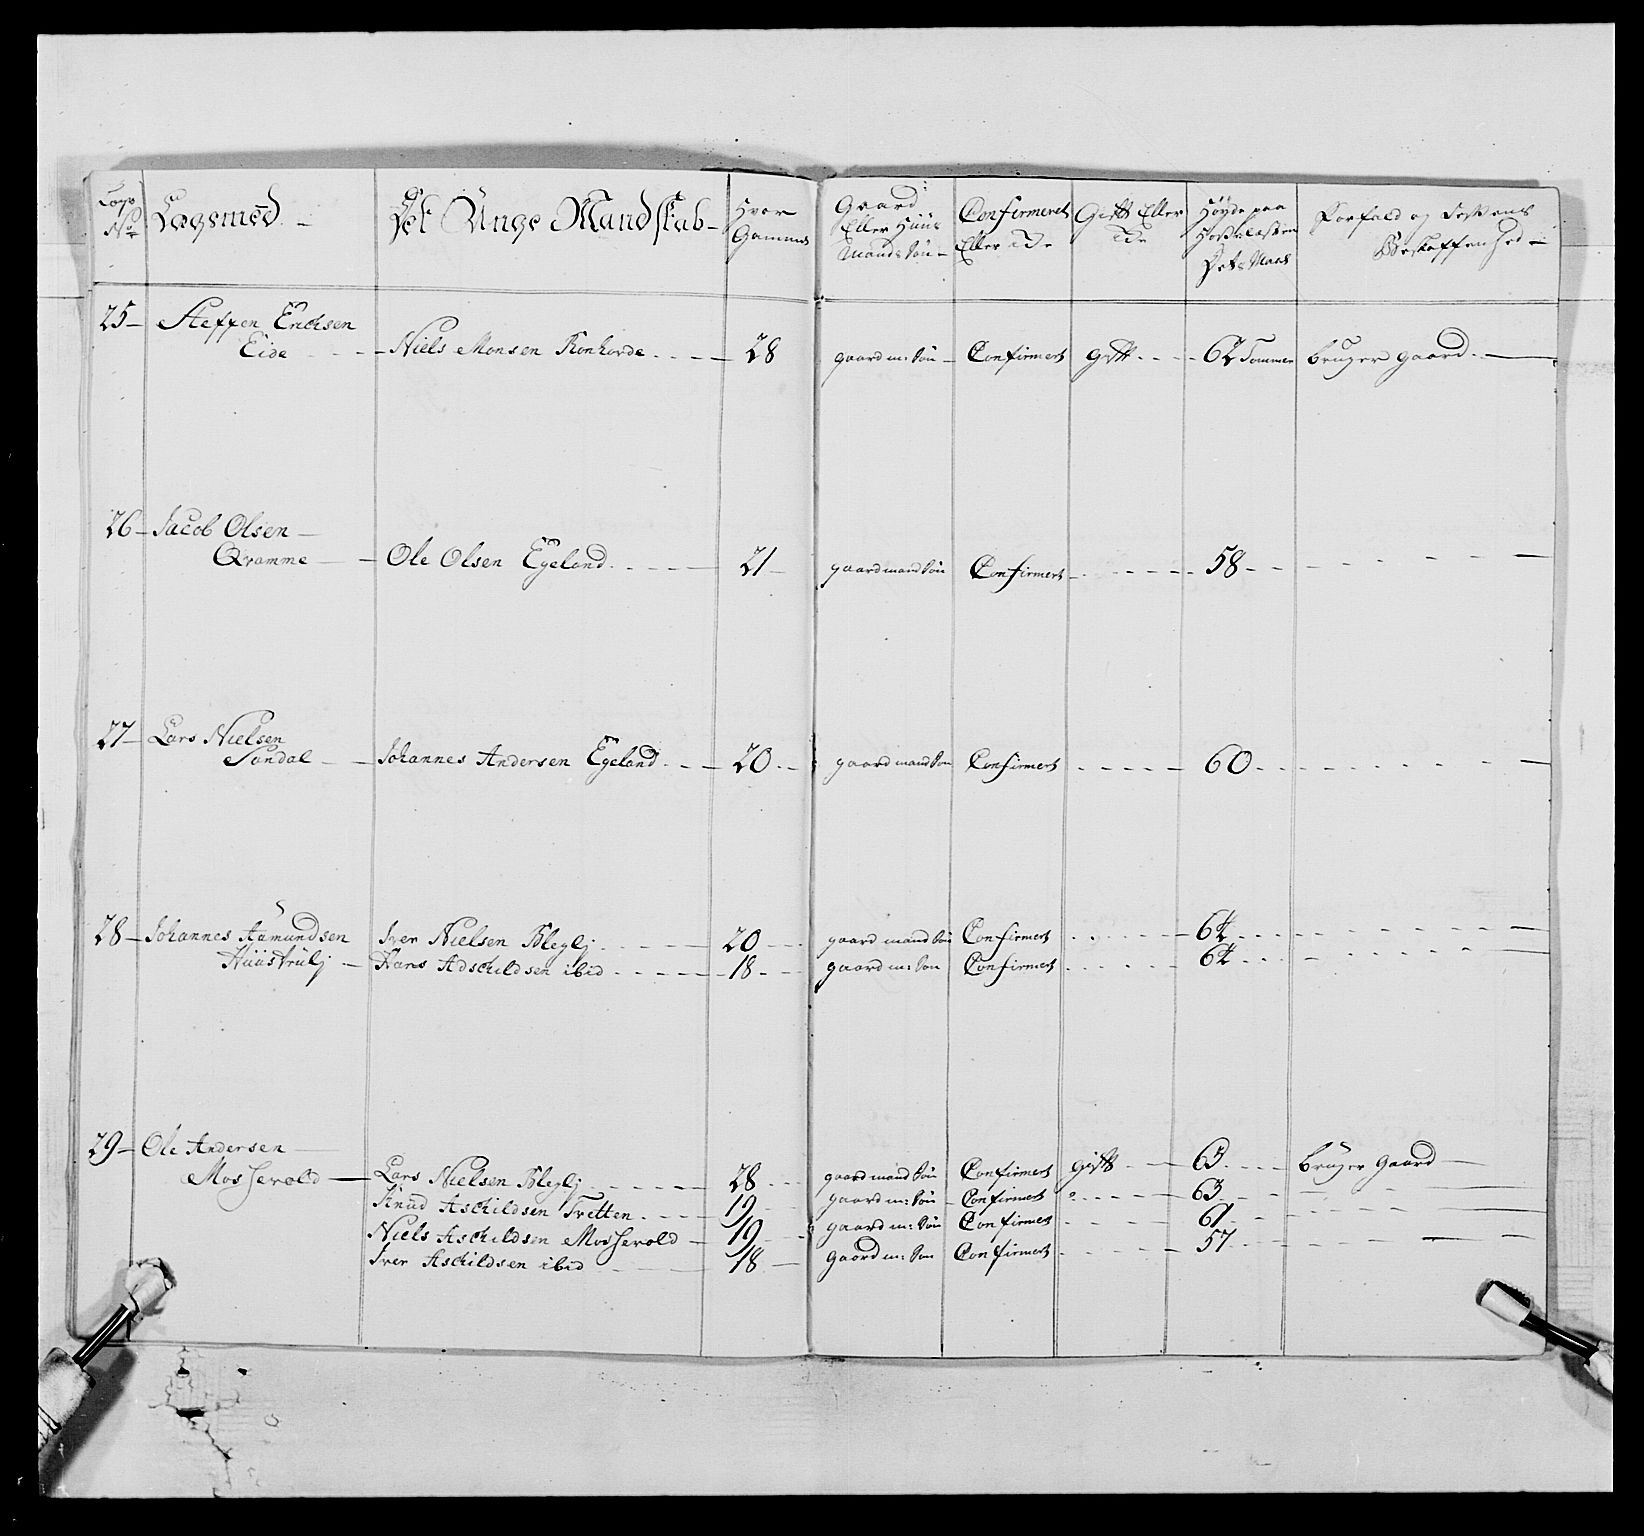 Lægs No Lægsmed. Det Unge Mandskab Hvor Gammel Gaard Eller Huus Mands Søn Confirmeret Eller Ide Gift Eller Ide Høyde paa Hosselæsten Forfald og
25 Steffen Erichsen
Eide Niels Monsen Ronhovde 28 gaard m: Søn Confirmert gift 62 Tommer bruger gaard
26 Jacob Olsen
Qvamme Ole Olsen Egeland 21 gaardmand Søn Confirmert 58
27 Lars Nielsen
Sandal Johannes Andersen Egeland 20 gaardmand Søn Confirmert 60
28 Johannes Aamundsen Iver Nielsen Bleglj 20 gaardmand Søn Confirmert 64
Huustrulj Hans Adschildsen ibid 18 gaard m: Søn Confirmert 64
29 Ole Andersen
Mosserold Lars Nielsen Bleglj 28 gaardmand Søn Confirmert gift 63 bruger Gaard
Knud Aschildsen Tvetten 19 gaard m: Søn Confirmert 63
Niels Aschildsen Mosserold 19 gaard m: Søn Confirmert 61
Iver Aschildsen ibid 18 Gaard m: Søn Confirmert 57